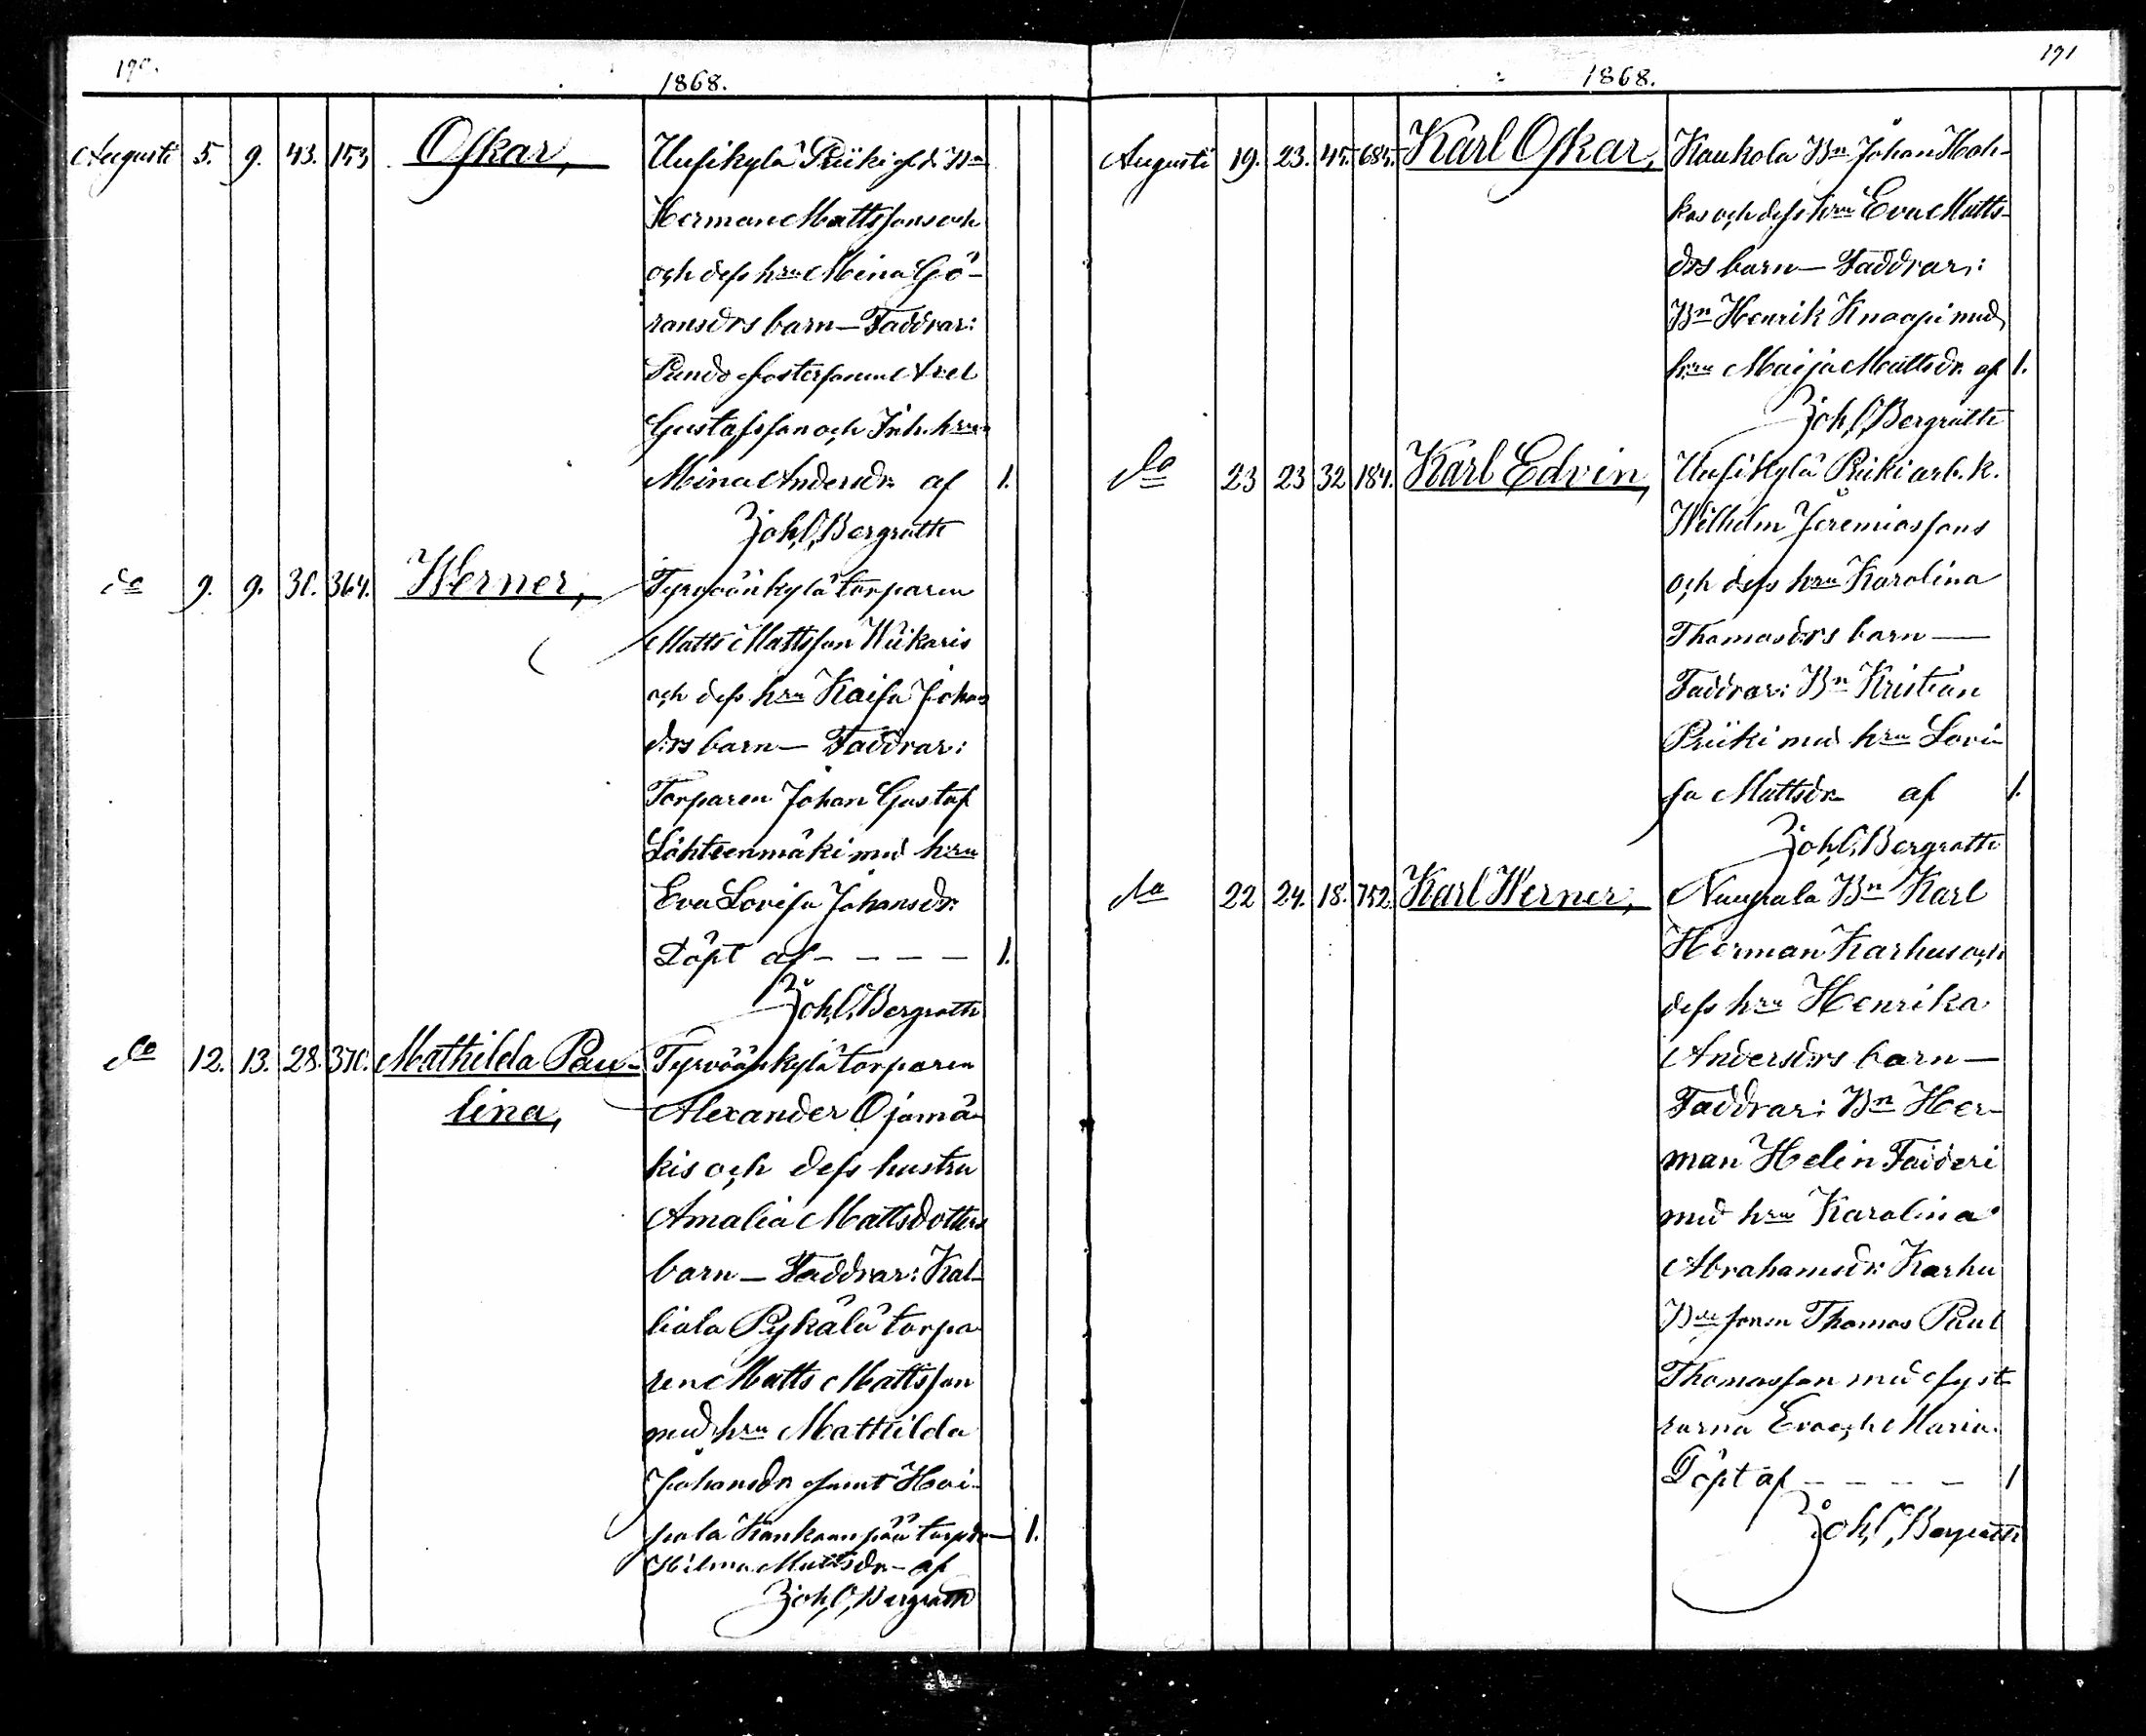 190.
1868.
Augusti 5. 9. 43. 153 Oskar, Uusikylä Priiki
Herman Mattssons och
och dess hru Mina Gö-
ransdrs barn — Faddrar:
fostersonen Axel
Gustafsson och Inh. hrun
Mina Andersdr. af 1.
Joh. O. Bergroth
do 9. 9. 31. 364. Werner, Tyrväänkylä torparen
Matts Mattsson Wiikaris
och dess hru Kaisa Johans
drs barn — Faddrar:
Torparen Johan Gustaf
Lähteenmäki med hru
Eva Lovisa Johansdr.
Döpt af — — — — 1.
Joh. O. Bergroth
do 12. 13. 28. 370. Mathilda Pau- Tyrväänkylä torparen
lina, Alexander Ojamä-
kis och dess hustru
Amalia Mattsdotters
barn — Faddrar: Kal-
liala Pykälä torpa
ren Matts Mattsson
med hru Mathilda
Johansdr samt Hoi-
pola Kankaanpää torpdr — 1.
Hilma Mattsdr — af
Joh. O. Bergroth
191
1868.
Augusti 19. 23. 45. 685. Karl Oskar, Kaukola Bn Johan Hoh-
kos och dess hru Eva Matts-
drs barn — Faddrar:
Bn Henrik Knaapi med
hru Maija Mattsdr. af 1.
Joh. O. Bergroth
do 23 23 32 184. Karl Edvin, Uusikylä Priiki arb. k.
Wilhelm Jeremiassons
och dess hru Karolina
Thomasdrs barn —
Faddrar: Bn Kristian
Priiki med hru Lovi-
sa Mattsdr af 1.
Joh. O. Bergroth
do 22 24. 18. 752. Karl Werner, Nuupala Bn Karl
Herman Karhus och
dess hru Henrika
Andersdrs barn —
Faddrar: Bn Her-
man Helin Faideri
med hru Karolina
Abrahamsdr: Karhu
Bde sonen Thomas Paul
Thomasson med syst
rarna Eva och Maria.
Döpt af — — — — 1
Joh. O. Bergroth